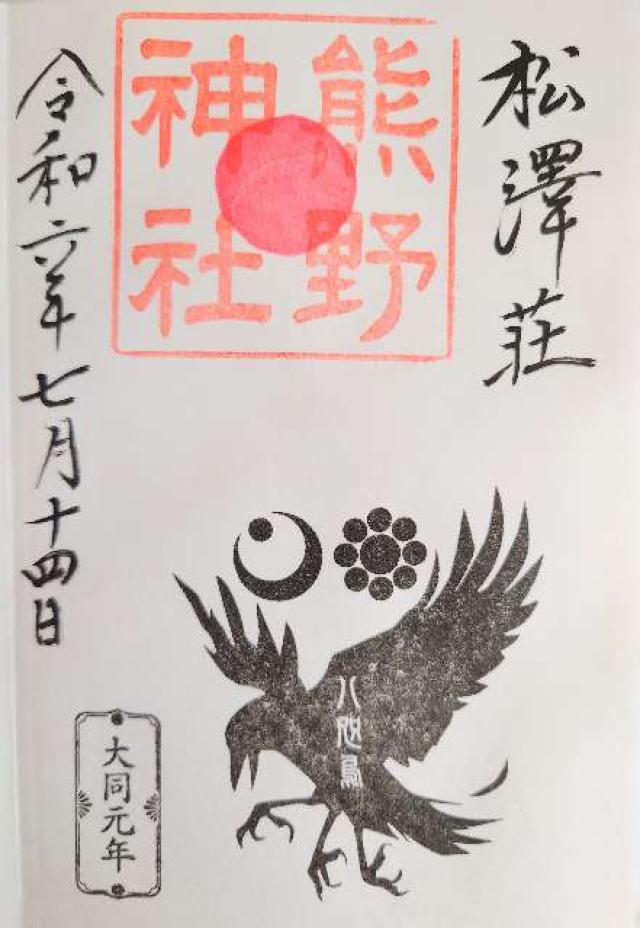 松澤荘
熊野
神社
令和六年七月十四日
八咫烏
大同元年